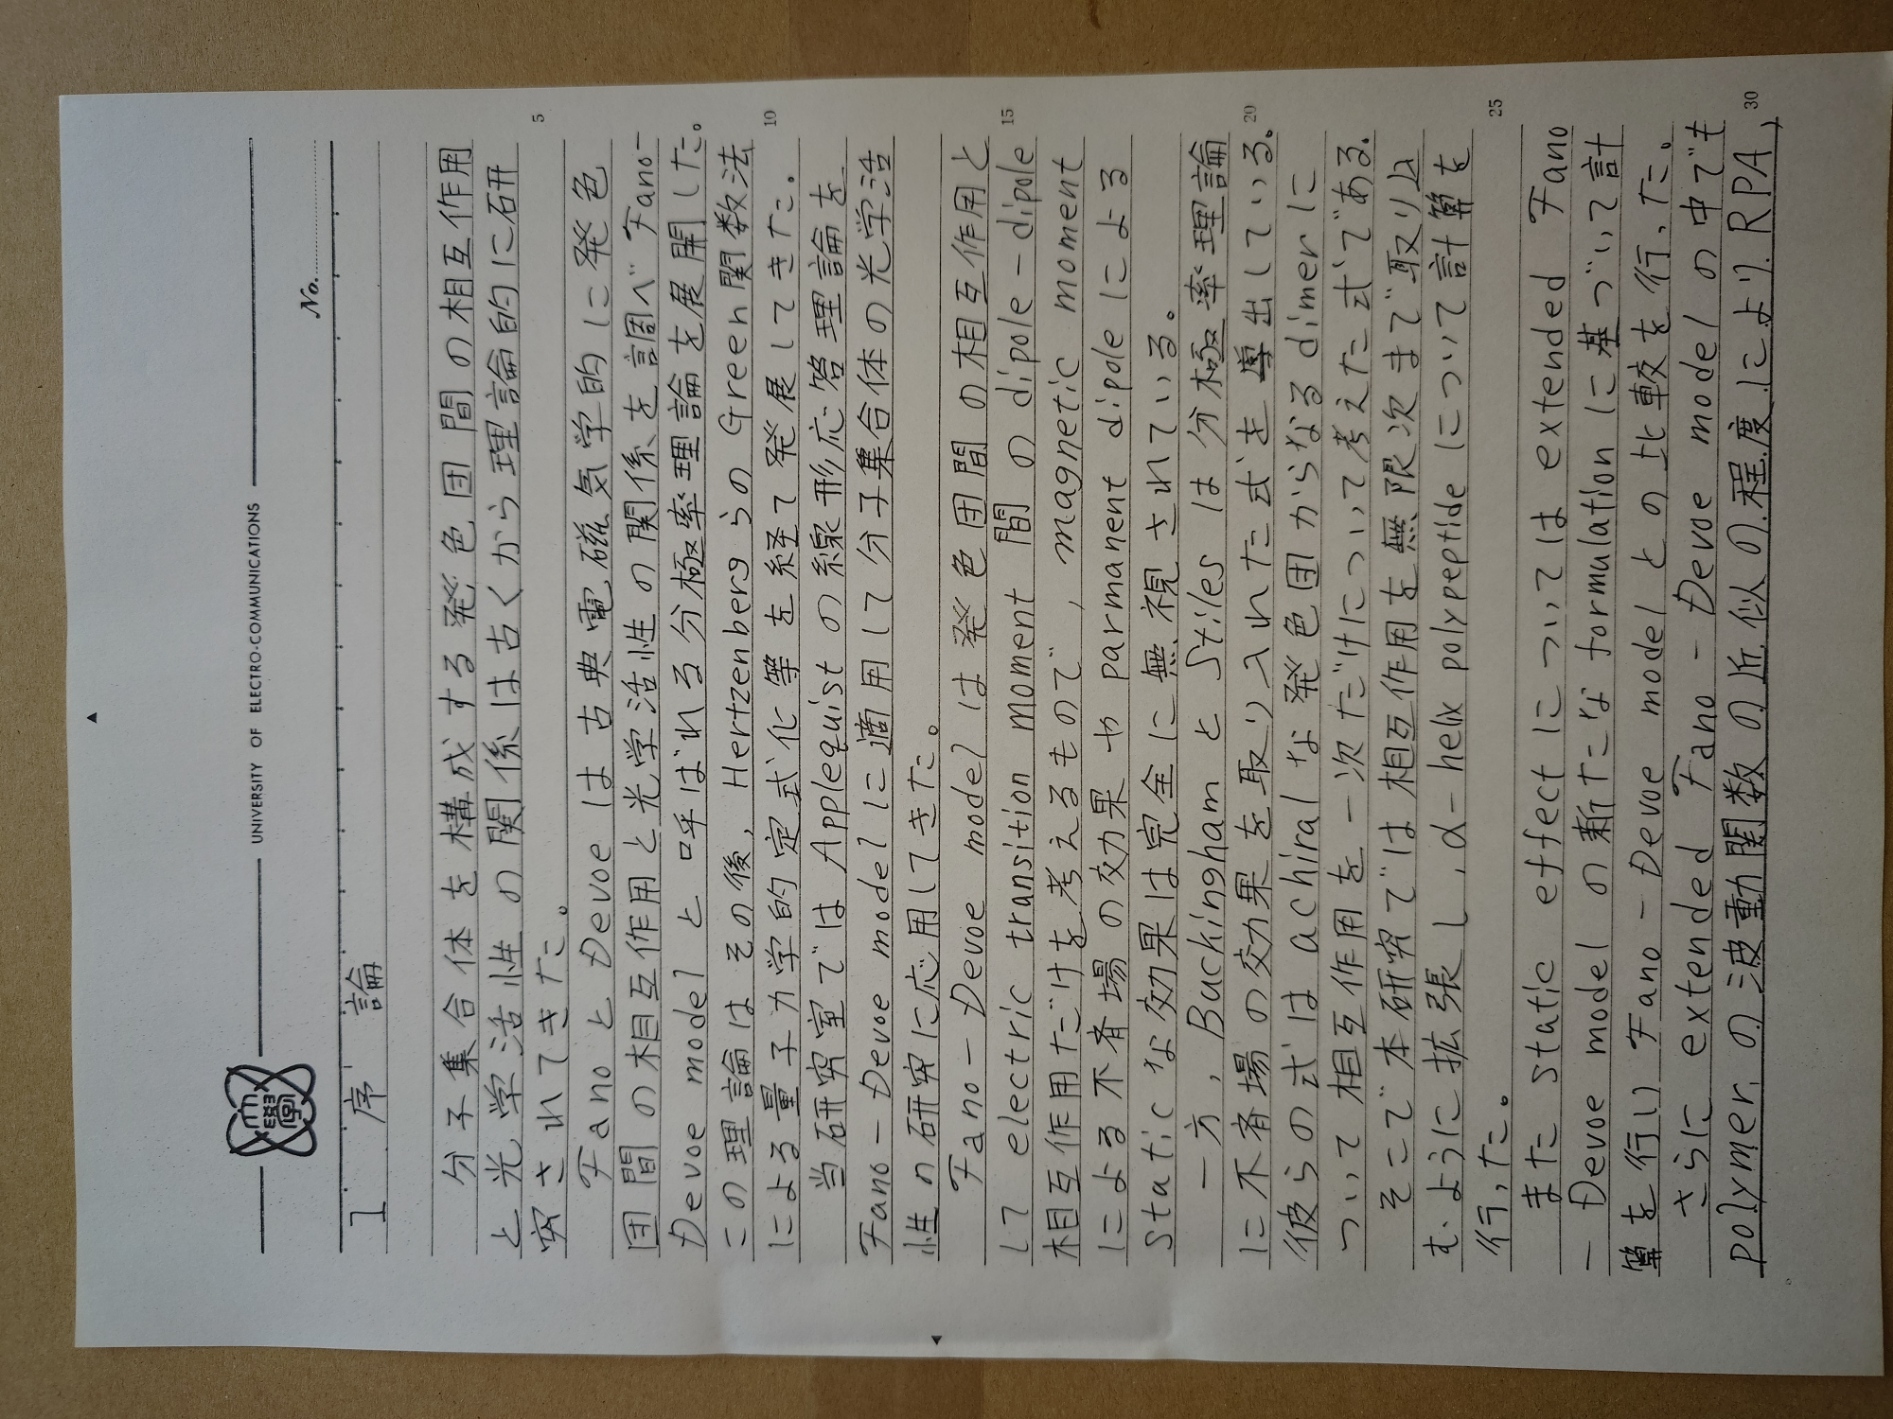 大學
UNIVERSITY OF ELECTRO-COMMUNICATIONS
No.
1 序論
分子集合体を構成する発色団間の相互作用
と光学活性の関係は古くから理論的に研
究されてきた。
5
FanoとDevoeは古典電磁気学的に発色
団間の相互作用と光学活性の関係を調べFano-
Devoe modelと呼ばれる分極率理論を展開した。
この理論はその後, HertzenbergらのGreen関数法
による量子力学的定式化等を経て発展してきた.
10
当研究室ではApplequistの線形応答理論を
Fano-Devoe modelに適用して分子集合体の光学活
性の研究に応用してきた。
Fano-Devoe modelは発色団間の相互作用と
して electric transition moment間のdipole-dipole
15
相互作用だけを考えるもので, magnetic moment
による不斉場の効果やparmanent dipoleによる
staticな効果は完全に無視されている。
一方, BuckinghamとStilesは分極率理論
に不斉場の効果を取り入れた式を導出している。
20
彼らの式はachiralな発色団からなるdimerに
ついて相互作用を一次だけについて考えた式である.
そこで本研究では相互作用を無限次まで取り込
むように拡張し, α-helix polypeptideについて計算を
行った。
25
またstatic effectについてはextended Fano
-Devoe modelの新たなformulationに基づいて計
算を行いFano-Devoe modelとの比較を行った。
さらにextended Fano-Devoe modelの中でも
polymerの波動関数の近似の程度によりRPA,
30